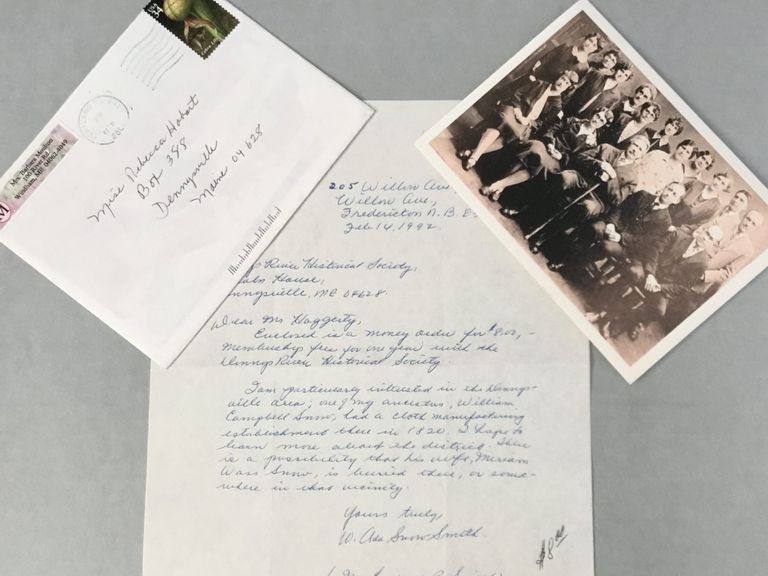 34
USA
Mrs. Barbara Madison
100 River Rd.
Windham, ME 04062-4049
M
Miss Rebecca Hobart
Box 348
Dennysville
Maine 04628
205 Willow Ave
Willow Ave.,
Fredericton N. B.
Feb. 14, 1992.
River Historical Society,
House,
nnysville, ME 04628.
Dear Mr Haggerty,
Enclosed is a money order for $8.00, -
Membership fee for one year with the
Dennys River Historical Society.
I am particularly interested in the Dennys-
ville area; one of my ancestors, William
Campbell Snow, had a cloth manufacturing
establishment there in 1820. I hope to
learn more about the district. There
is a possibility that his wife, Miriam
Wass Snow, is buried there, or some-
where in that vicinity.
Yours truly,
W. Ada Snow Smith.
$8.00